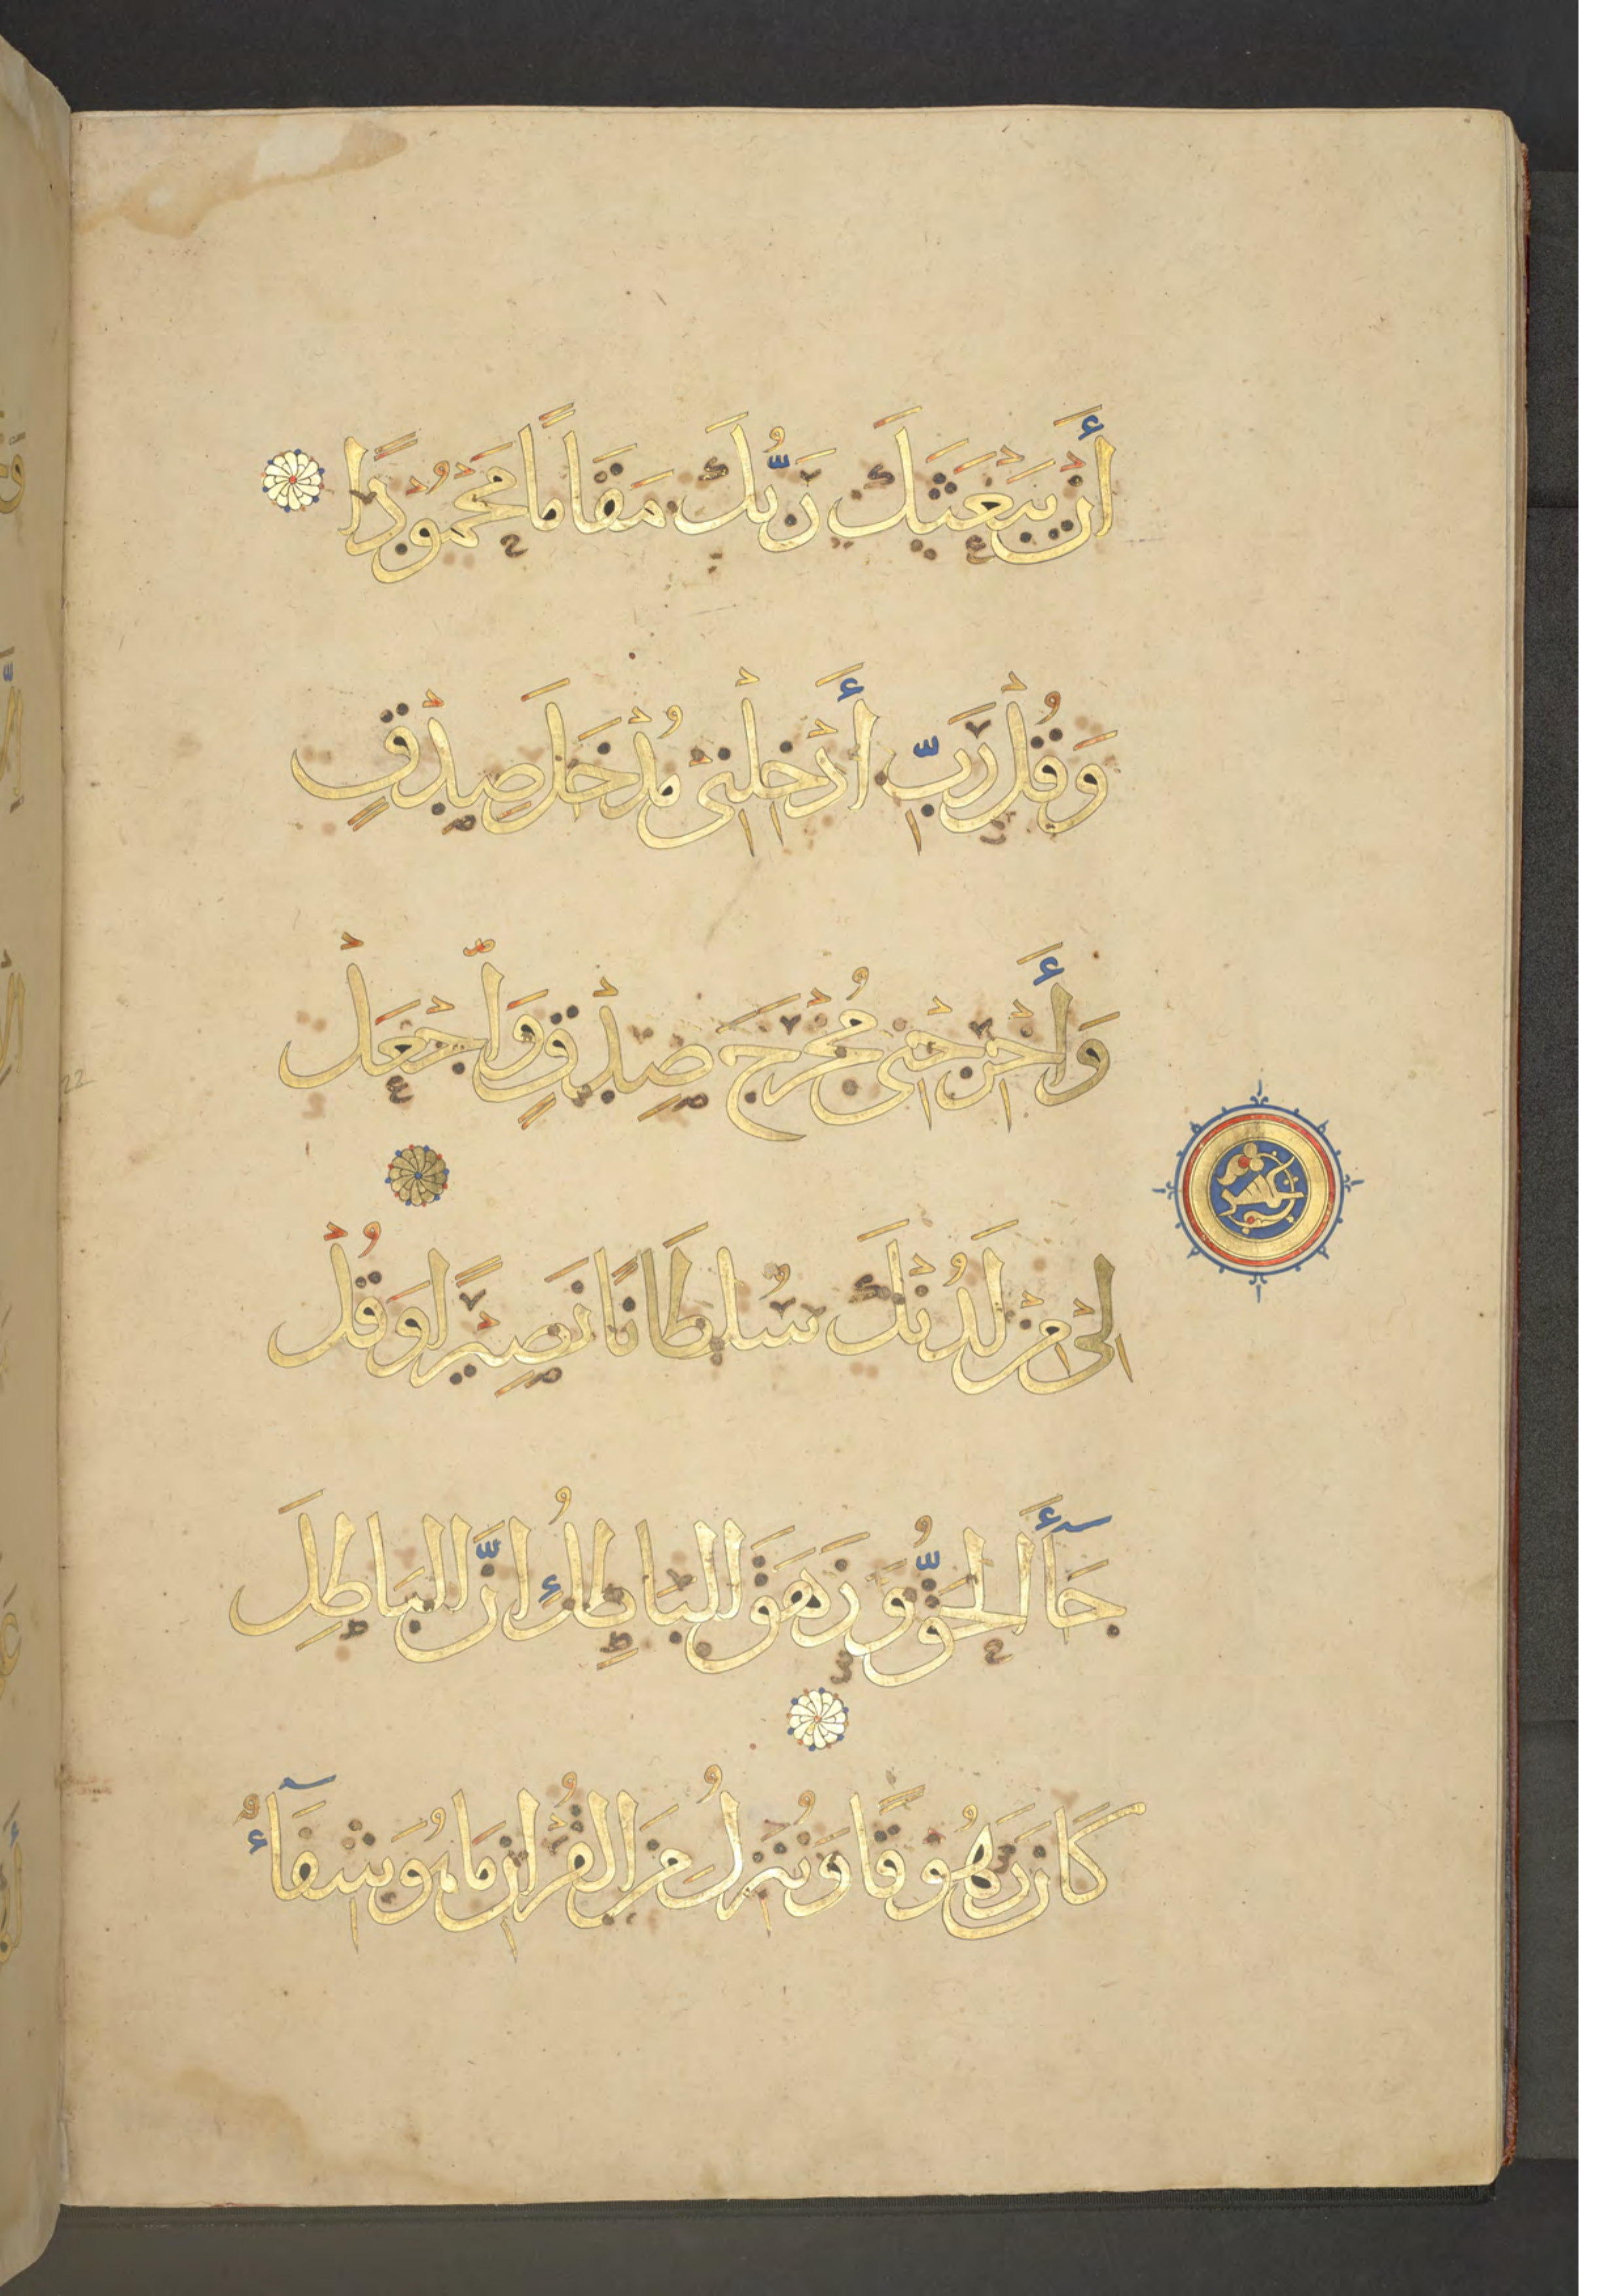 أَنْ يَبْعَثَكَ رَبُّكَ مَقَامًا مَحْمُودًا
وَقُلْ رَبِّ أَدْخِلْنِي مُدْخَلَ صِدْقٍ
وَأَخْرِجْنِي مُخْرَجَ صِدْقٍ وَاجْعَلْ
لِي مِنْ لَدُنْكَ سُلْطَانًا نَصِيرًا وَقُلْ
جَآءَ الْحَقُّ وَزَهَقَ الْبَاطِلُ إِنَّ الْبَاطِلَ
كَانَ زَهُوقًا وَنُنَزِّلُ مِنَ الْقُرْآنِ مَا هُوَ شِفَآءٌ